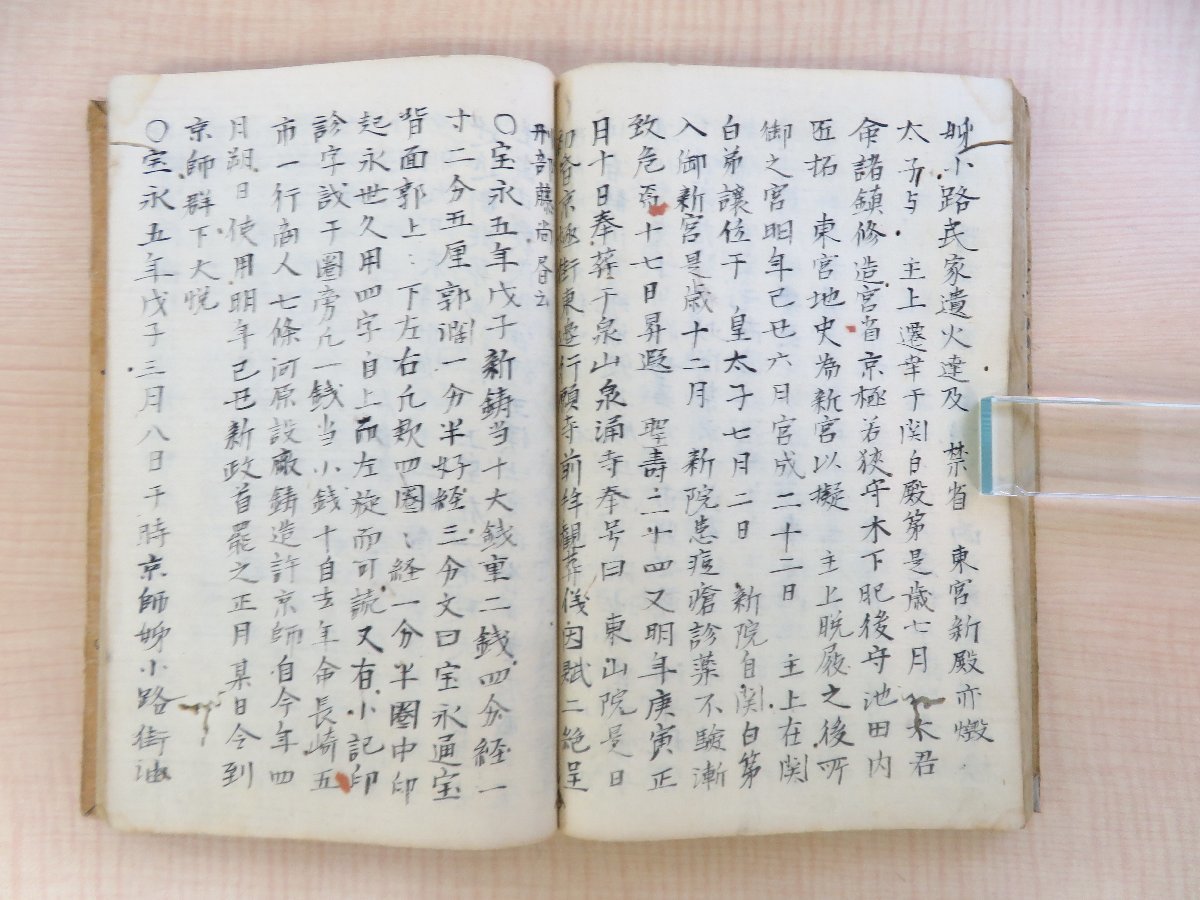 姉小路民家遺火達及　禁省　東宮新殿亦燬
太子与　主上遷幸于関白殿第是歳七月　大君
命諸鎮修造宮省京極若狭守木下肥後守池田内
匠拓　東宮地史為新宮以擬　主上脱屐之後所
御之宮明年己丑六日宮成二十二日　主上在関
白第譲位于　皇太子七月二日　新院自関白第
入御新宮是歳十二月　新院患痘瘡診薬不験漸
致危焉十七日昇遐　聖寿二十四又明年庚寅正
月十日奉葬于泉山泉涌寺奉号曰　東山院是日
初昏京極街東辺行願寺前絆観葬儀因賦二絶呈
刑部藤尚
〇宝永五年戊子新鋳当十大銭重二銭四分経一
寸二分五厘郭濶一分半好経三分文曰宝永通宝
背面郭上﹅下左右凡款四圏﹅経一分半圏中印
起永世久用四字自上而左旋而可読又有小記印
診字設于圏旁凡一銭当小銭十自去年命長崎五
市一行商人七條河原設廠鋳造許京師自今年四
月朔日使用明年己丑新政首罷之正月某日令到
京師群下大悦
〇宝永五年戊子三月八日于時京師姉小路街油